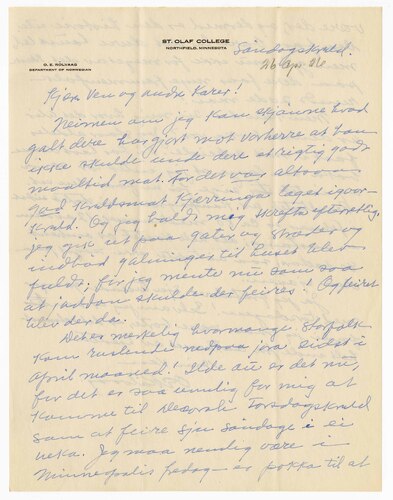 ST. OLAF COLLEGE
NORTHFIELD, MINNESOTA
O. E. ROLVAAG
DEPARTMENT OF NORWEGIAN
Søndagskveld.
26 Apr 26
Kjære Ven og andre Karer!
Neimen om jeg kan skjønne hvad
galt dere har gjort mot Vorherre at han
ikke skulde unde dere et rigtig godt
maaltid mat. For det var altsaa
god kveldsmat Kjerringa laget igaar-
kveld. Og jeg holdt mig skrafte efterrettelig.
Jeg gik ut paa gater og stræder og
indbød halvinger til huset blev
fuldt; for jeg mente nu som saa
at jadson skulde der feires! Og feiret
blev der da.
Det er merkelig hvor mange Storfolk
kom ruslende nedpaa jora sidst i
April maaned! Ilde at er det nu,
for det er saa umulig for mig at
komme til Decorah Torsdagskveld
som at feire sju søndage i ei
veka. Jeg maa nemlig være i
Minneapolis fredag - er pokka til at